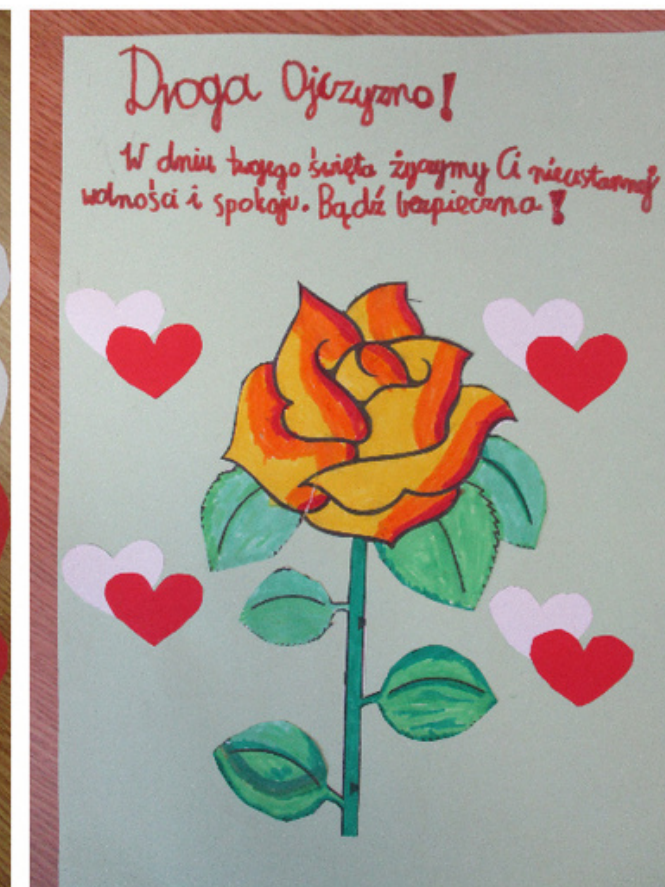 Droga Ojczyzno!
W dniu twojego święta życzymy Ci nieustannej
wolności i spokoju. Bądź bezpieczna!